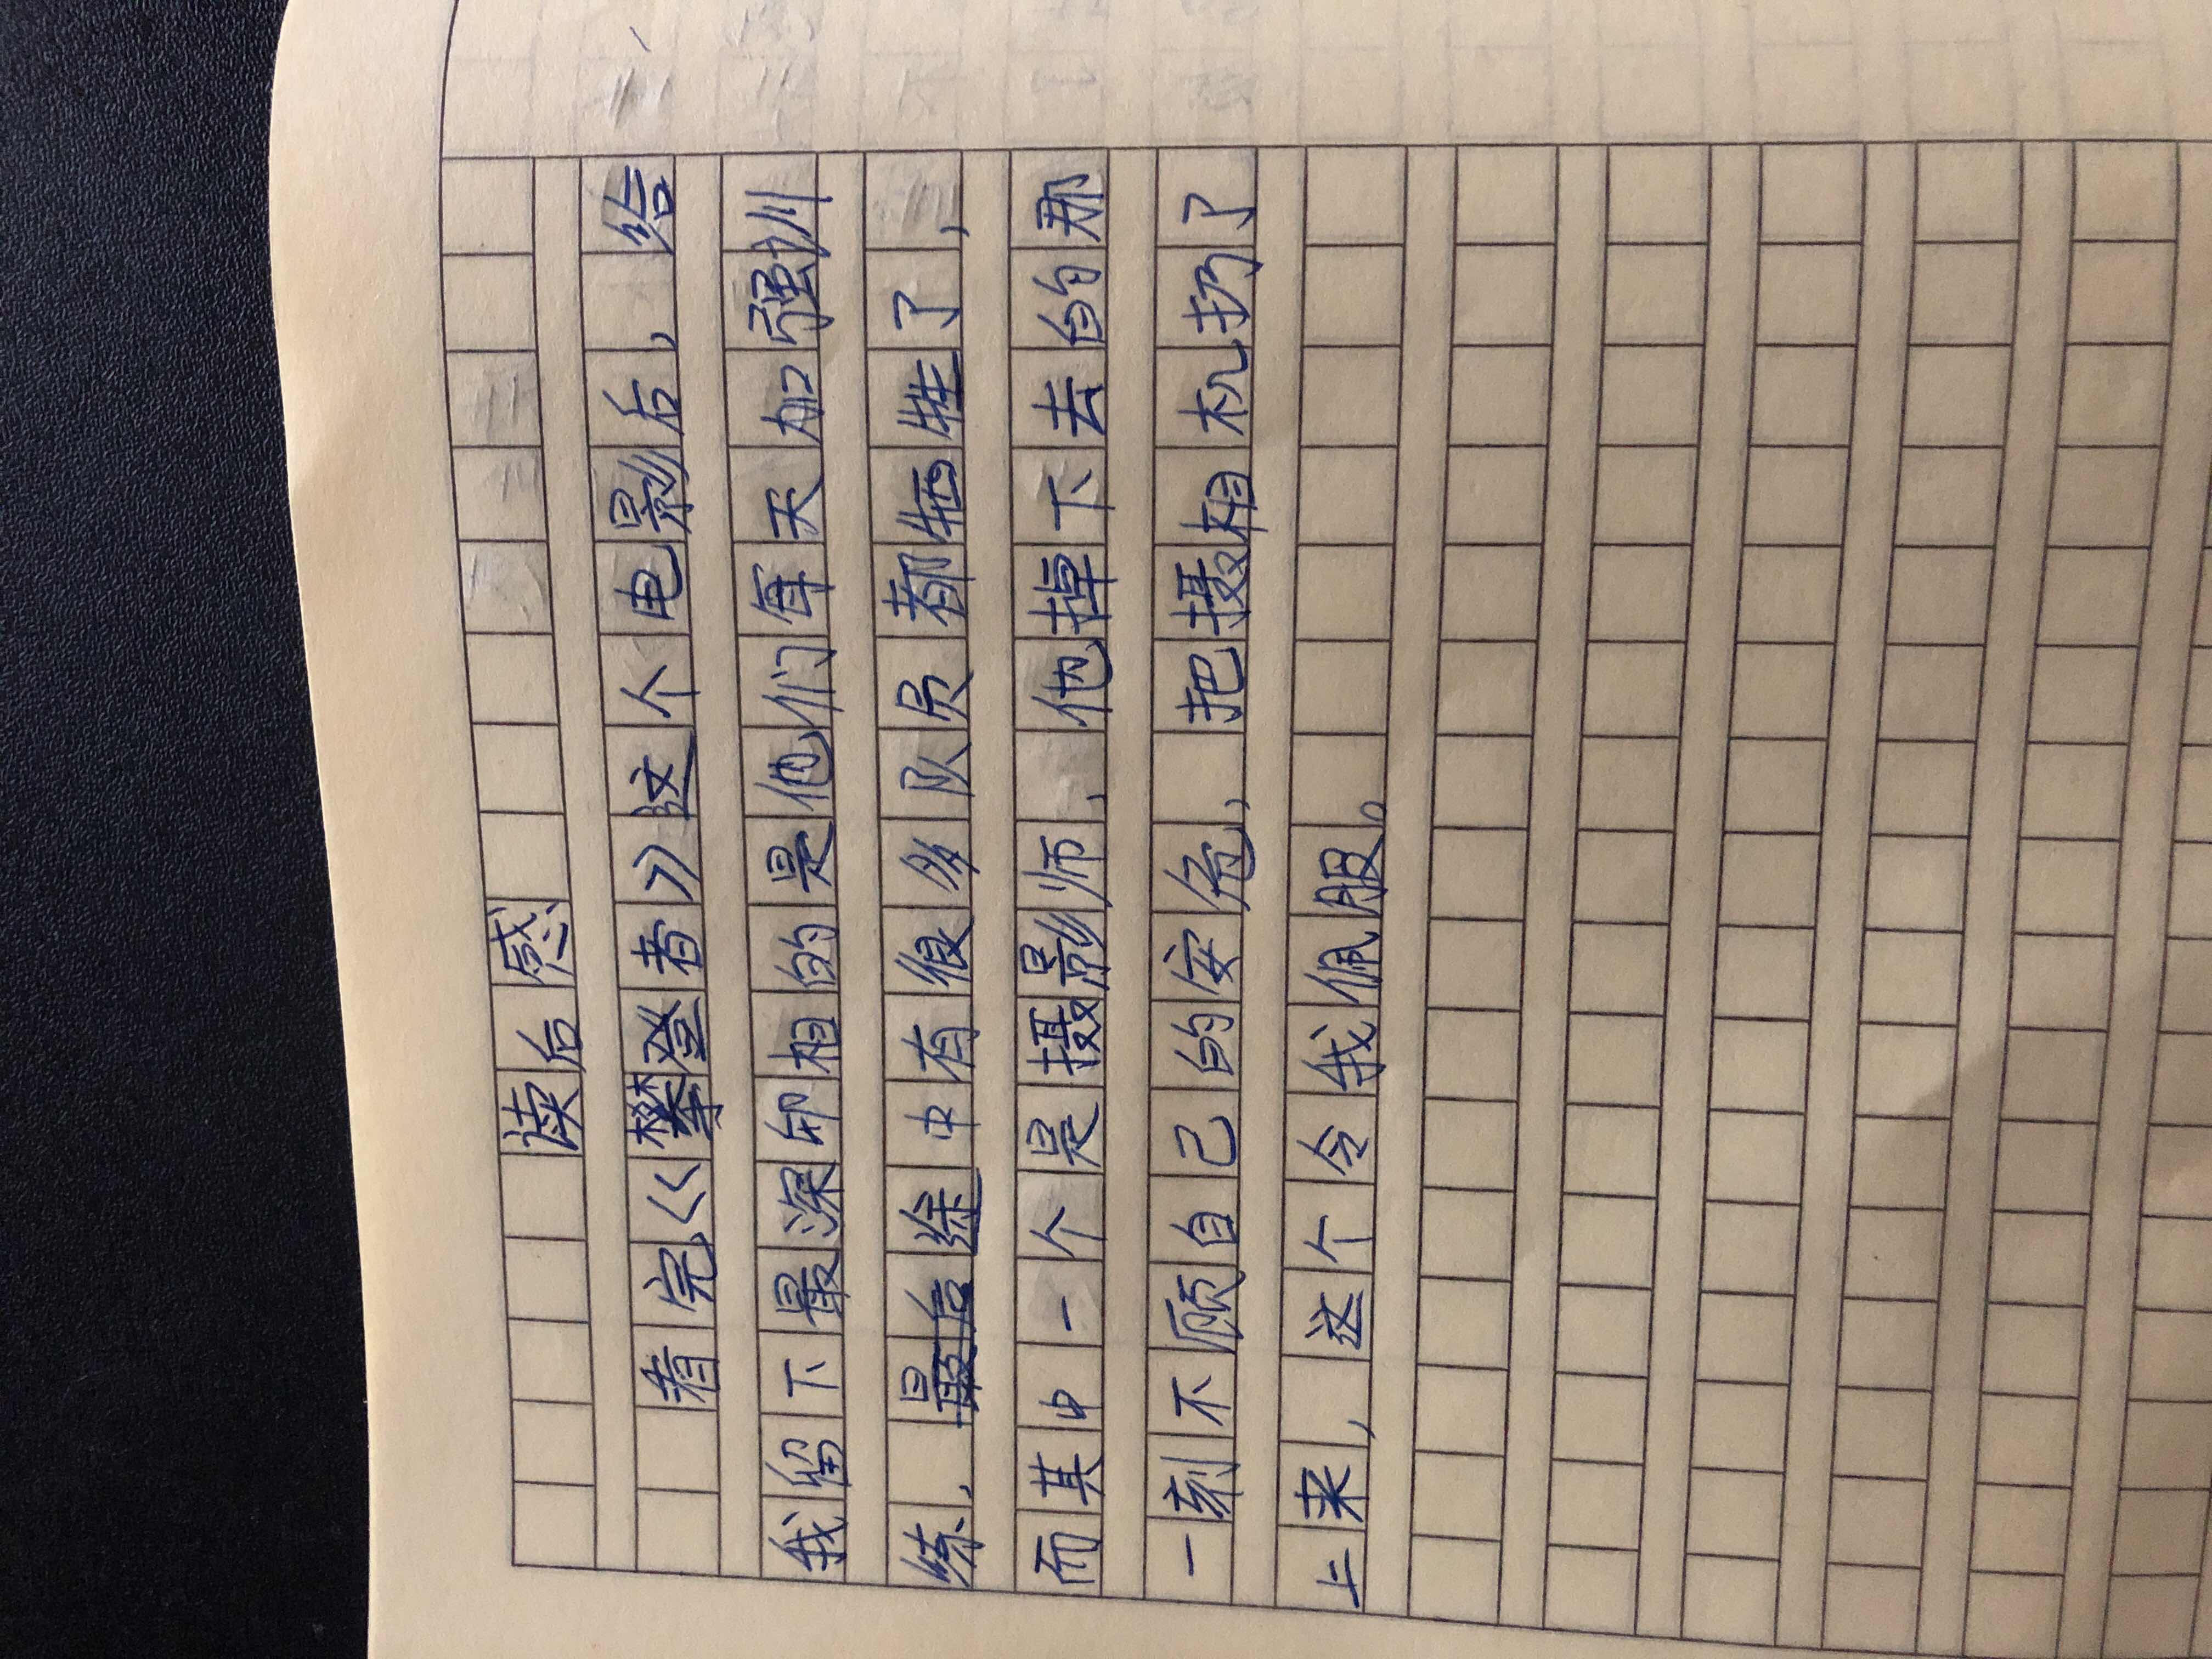 读后感
看完《攀登者》这个电影后，给
我留下最深印相的是他们每天加强训
练，最后途中有很多队员都牺牲了，
而其中一个是摄影师，他掉下去的那
一刻不顾自己的安危，把摄相机扔了
上来，这个令我佩服。